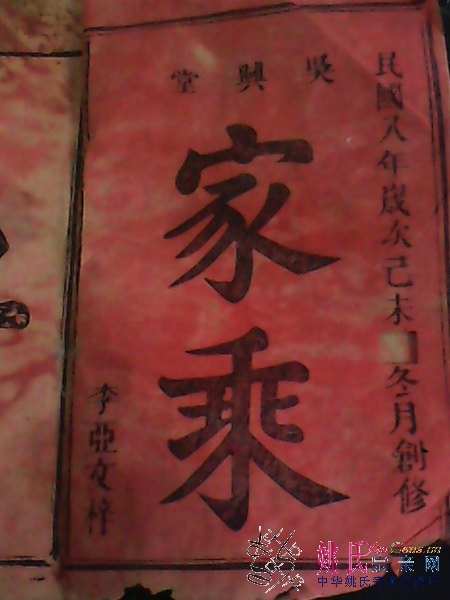 民國八年歲次己未冬月創修
吳興堂
家乘
李亞文梓
姚氏
中华姚氏